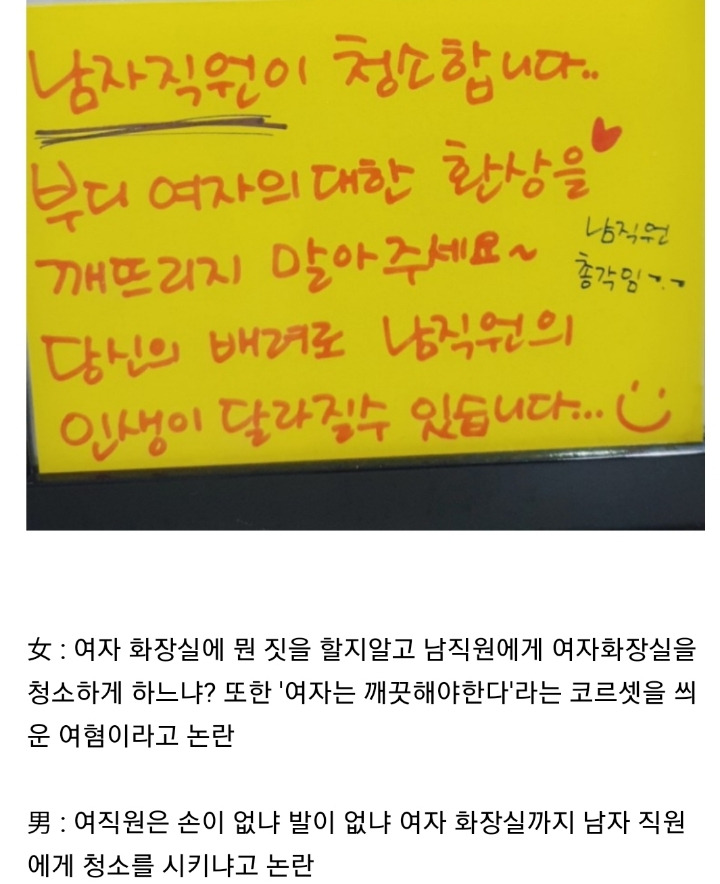 남자직원이 청소합니다..
부디 여자의대한 환상을
깨뜨리지 말아주세요~
남직원
총각임ㅜ.ㅜ
당신의 배려로 남직원의
인생이 달라질수 있습니다...
女 : 여자 화장실에 뭔 짓을 할지알고 남직원에게 여자화장실을
청소하게 하느냐? 또한 '여자는 깨끗해야한다'라는 코르셋을 씌
운 여혐이라고 논란
男 : 여직원은 손이 없냐 발이 없냐 여자 화장실까지 남자 직원
에게 청소를 시키냐고 논란